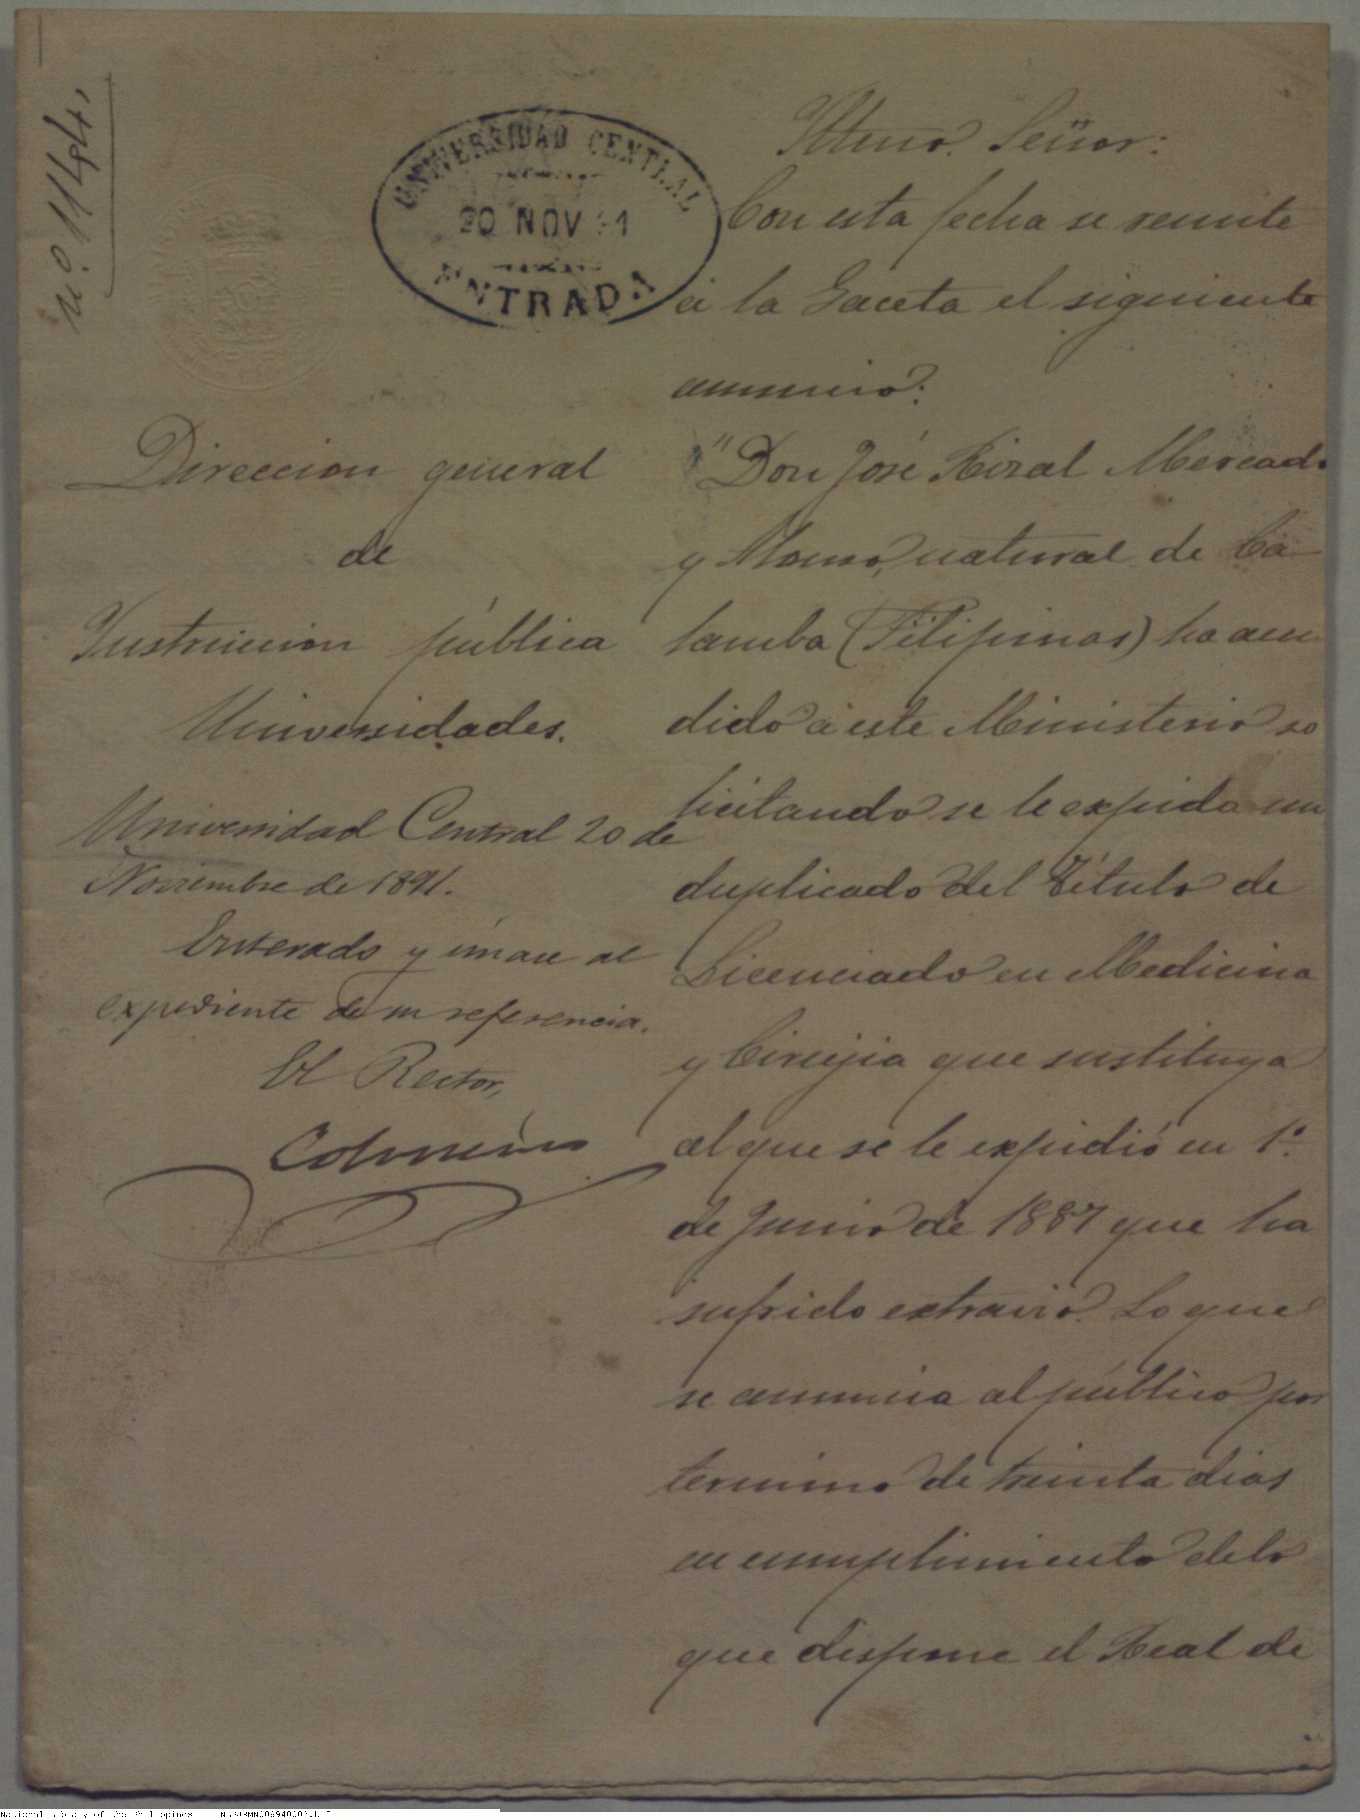 nº. 1144,
UNIVERSIDAD CENTRAL
20 NOV 91
ENTRADA
Iltmo. Señor:
Con esta fecha se remite
á la Gaceta el siguiente
anuncio:
"Don José Rizal Mercado
y Alonso, natural de Ca-
lamba (Filipinas) ha acu
dido á este Ministerio so
licitando se le expida un
duplicado del Título de
Licenciado en Medicina
y Cirujia que sustituya
al que se le expidió en 1º.
de Junio de 1887 que ha
sufrido extravio. Lo que
se anuncia al público por
termino de treinta dias
en cumplimiento de lo
que dispone el Real de
Direccion general
de
Instruccion pública
Universidades.
Universidad Central 20 de
Noviembre de 1891.
Enterado y únase al
expediente de su referencia.
El Rector,
National Library of the Philippines